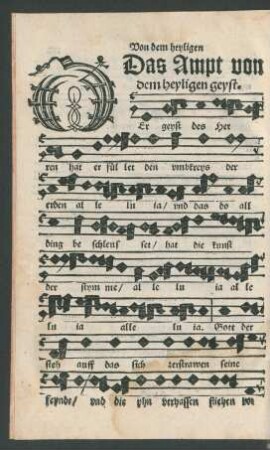 Von dem heyligen
Das Ampt von
dem heyligen geyst.
Er geyst des Her
ren hat er fül let den vmbkreys der
erden al le lu ia/ vnd das do all
ding be schleuſ ſet/ hat die kunſt
der ſtym me/ al le lu ia al le
lu ia alle lu ia. Gott der
ſteh auff das ſich zerſtrawen ſeine
feynde/ vnd die yhn verhaſſen fliehen von